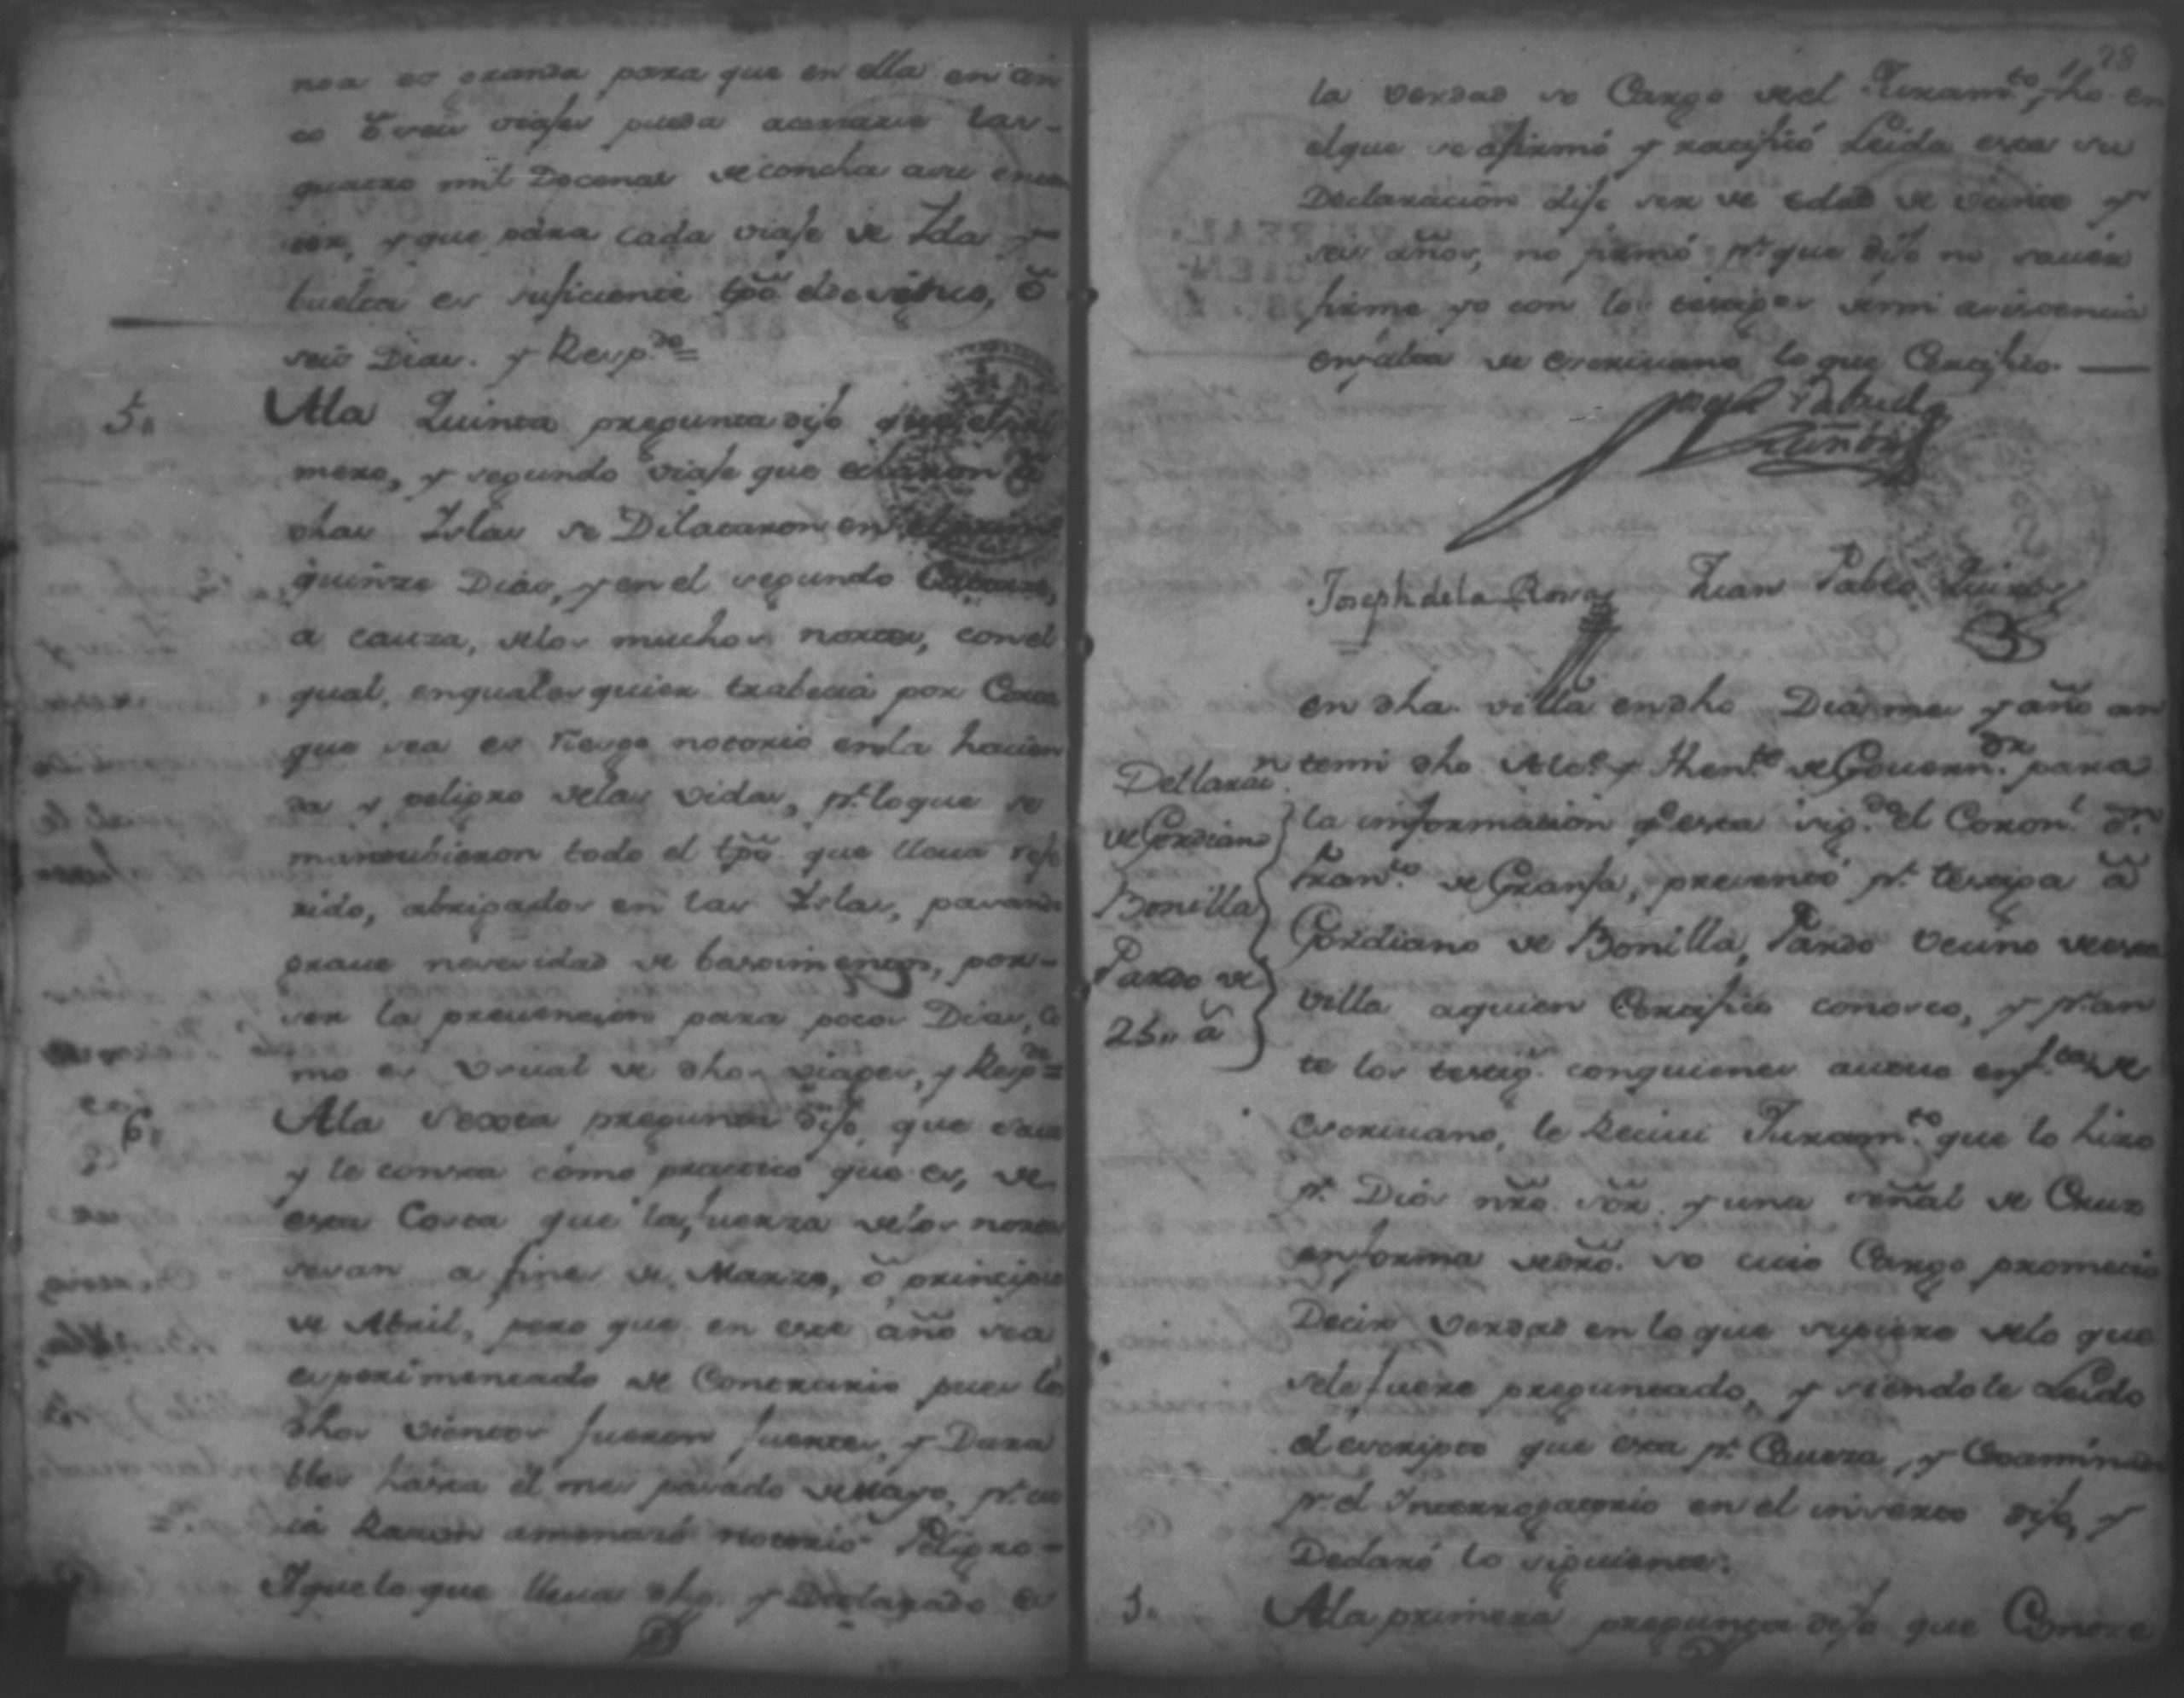 noa es grande para que en ella en cin
co ô seis viajes pueda acarrear las
quatro mil Docenas de concha
y que para cada viaje de Ida y
buelta es suficiente tpõ de cinco, ô
seis Dias. y Resp.de =
5. Ala Quinta pregunta dijo que el pri
mero, y segundo viaje que echaron
dhas Islas se Dilataron en el
quinze Dias, y en el segundo
a cauza, delos muchos nortes, con el
qual, en qualesquier trabecia por Corta
que sea es riesgo notorio en la hacien
da y peligro delas vidas, pr. lo que se
mantubieron todo el tpõ. que lleua refe
rido, abrigados en las Islas, pasando
graue nesesidad de bastimentos, por
ser la preuencion para pocos Dias, Co
mo es Usual de dhos viages, y Resp.de =
6. Ala Sexta pregunta dijo, que saue
y le consta como practico que es, de
esta Costa que la fuerza delos nortes
sesan a fines de Marzo, ô principio
de Abril, pero que en este año sea
experimentado de Contrario pues los
dhos Vientos fueron fuertes, y Dura
bles hasta el mes pasado de Mayo, pr. cu
ia Razon amenazó notorio Peligro
Y que lo que lleua dho. y Declarado es
28
la Verdad so Cargo del Juram.to fho en
el que se afirmó y ratificó Leida esta su
Declaracion dijo ser de edad de veinte y
seis años, no firmó pr. que dijo no sauer
firme yo con los testigos demi asistencia
en falta de Escriuano lo que Certifico.
Joseph de la Rosa Juan Pablo
en dha. villa en dho Dia mes y año an
temi dho Alc.e y Thent.e de Gouern.dr para
la informacion qe esta sig.do el Coron.l Dn.
Fran.co de Granja, presentó pr. testigo â
Gordiano de Bonilla, Pardo Vecino de esta
villa aquien Certifico conosco, y pr. an
te los testig.s conquienes autuo en f.ta de
Escriuano, le Reciui Juram.to que lo hizo
pr. Dios nrõ. Sõr. y una señal de Cruz
en forma de drõ. so cuio Cargo prometio
Decir Verdad en lo que supiere delo que
sele fuere preguntado, y siendole Leido
el escripto que esta pr. Caueza, y Examinado
pr. el Interrogatorio en el inserto dijo, y
Declaró lo siguiente.
Declaracn
de Gordiano
Bonilla
Pardo de
25,, ã
1. Ala primera pregunta dijo que Conose